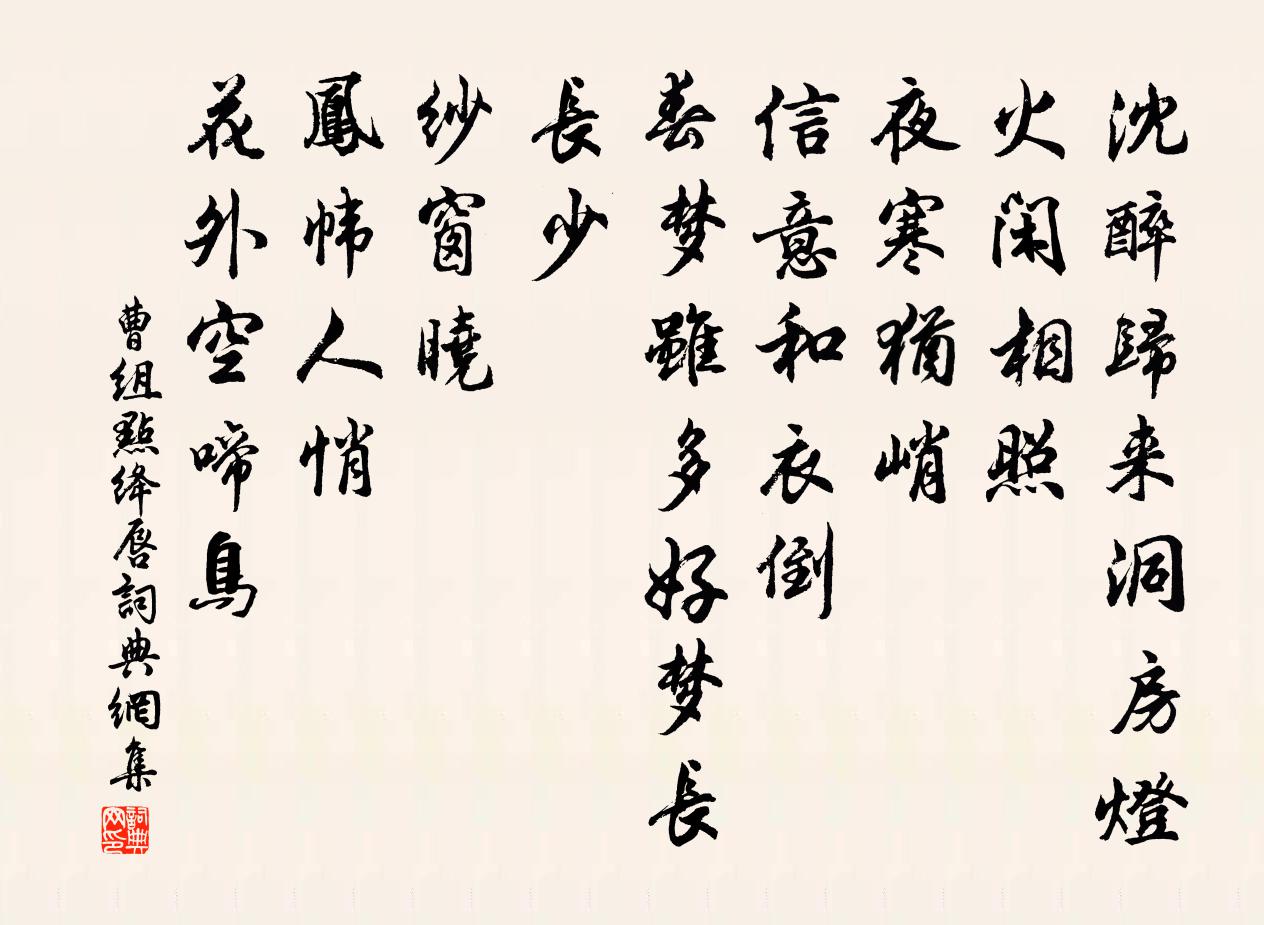 沈醉歸来洞房燈
火閑相照
夜寒猶峭
信意和衣倒
春梦雖多好梦長
長少
紗窗曉
鳳幃人悄
花外空啼鳥
曹組點绛唇詞典網集
詞典网印